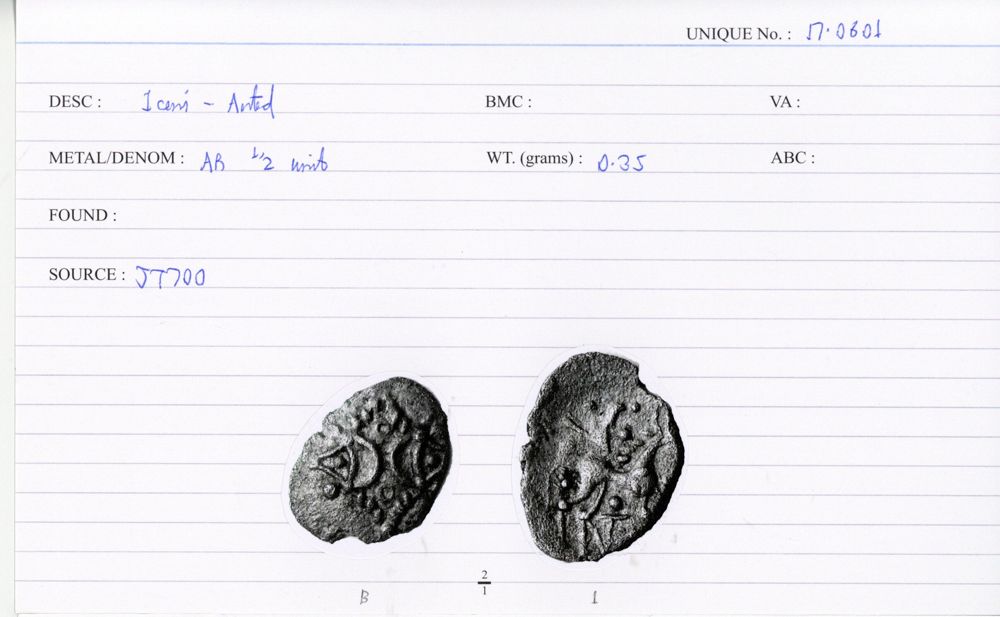 UNIQUE No. : 17.0601
DESC : Iceni - Anted BMC : VA :
METAL/DENOM : AR 1/2 unit WT. (grams) : 0.35 ABC :
FOUND :
SOURCE : JT700
2
1
B 1